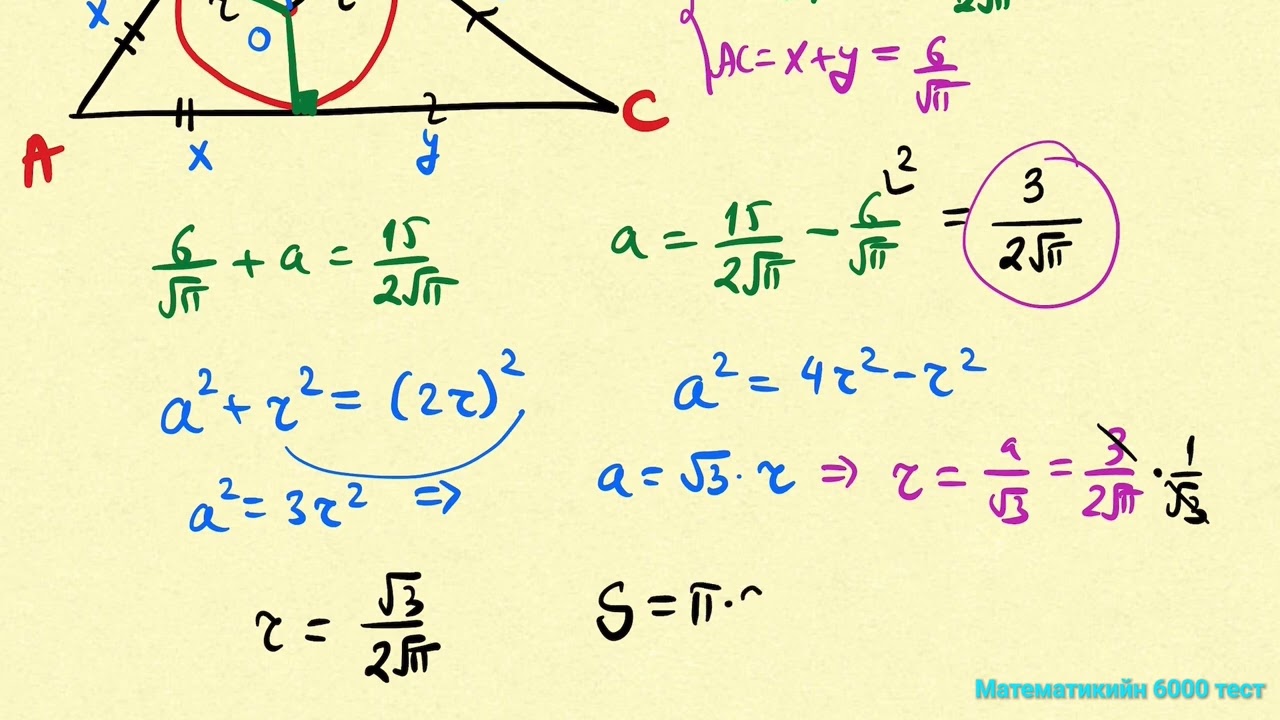 x r r 2√π
O AC = x + y = 6/√π
A x y C
6/√π + a = 15/2√π a = 15/2√π - 6/√π 2 = 3/2√π
a² + r² = (2r)² a² = 4r² - r²
a² = 3r² ⇒ a = √3 · r ⇒ r = a/√3 = 3/2√π · 1/√3
r = √3/2√π S = π ·
Математикийн 6000 тест